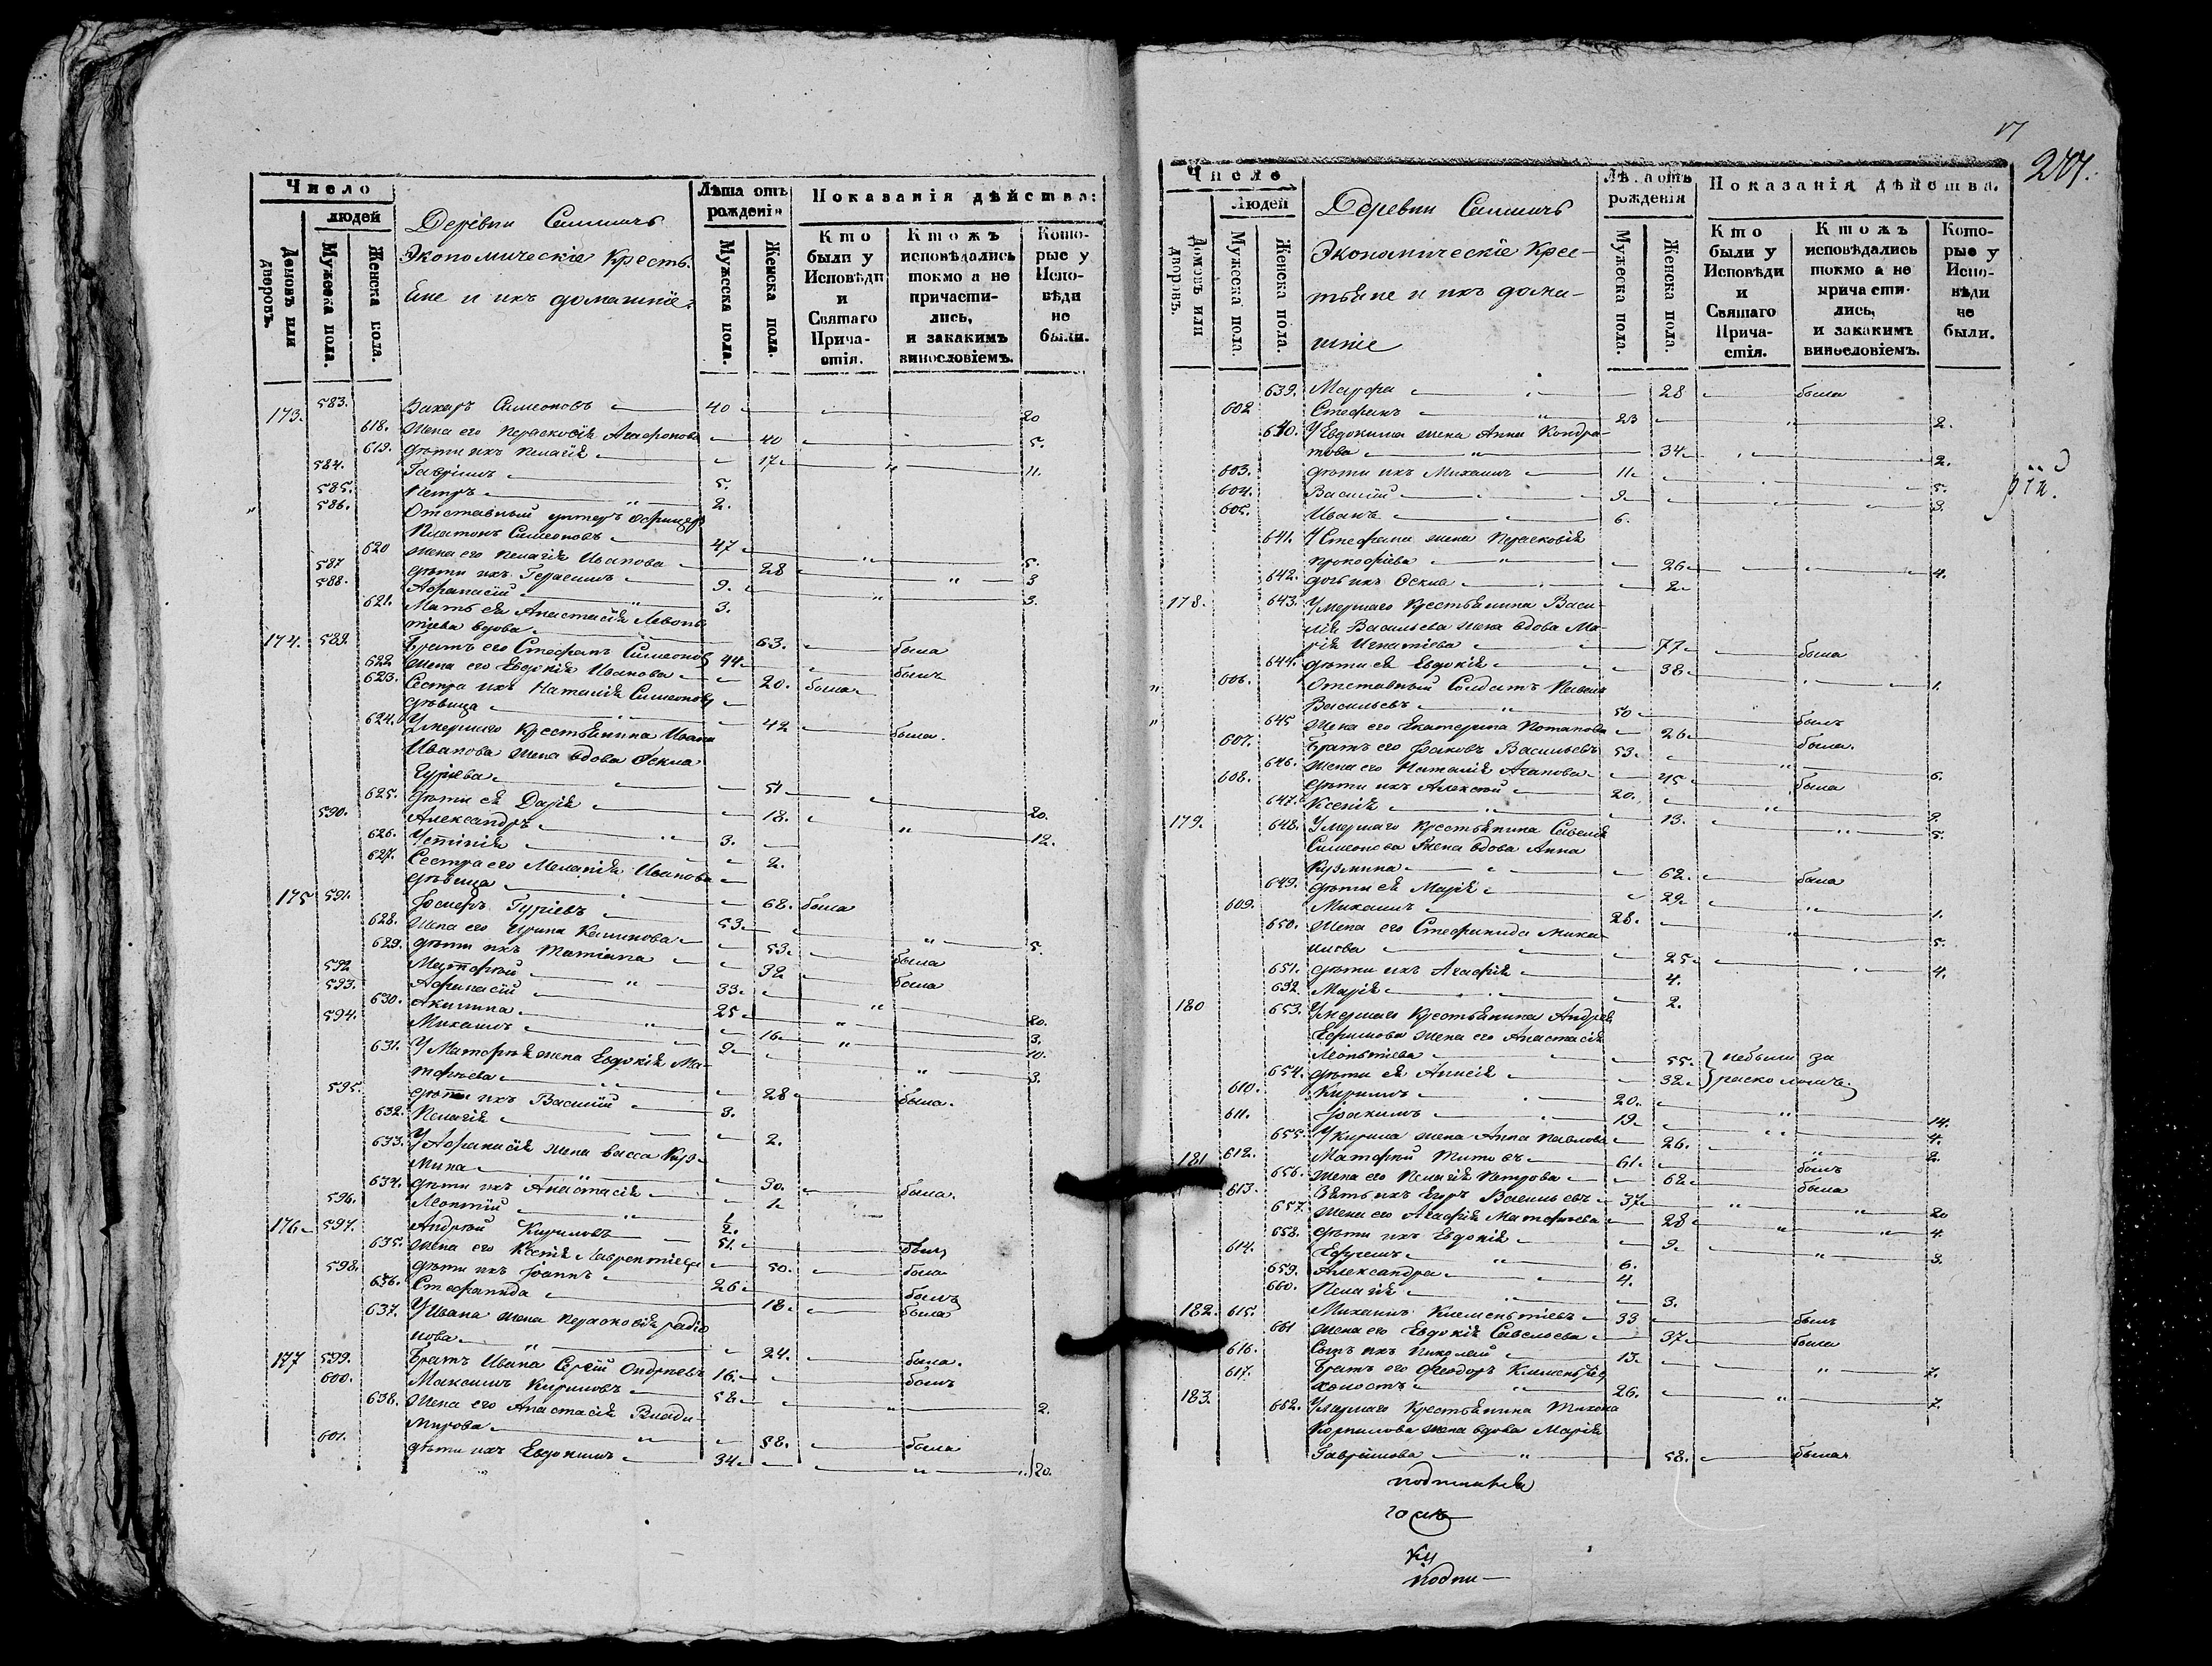 Число
людей
Домовъ или дворовъ.
Мужеска пола.
Женска пола.
Деревни
Экономическіе Кресть-
яне и ихъ домашніе
Лѣта отъ рожденія
Мужеска пола.
Женска пола.
Показанія дѣйства:
Кто были у Исповѣди и Святаго Причастія.
Ктожъ исповѣдались токмо а не причастились, и закакимъ винословіемъ.
Которые у Исповѣди не были.
173. 583. Захаръ Симеоновъ 40 20
618. Жена его Парасковія Агафонова 40 5.
619. дѣти ихъ Пелагія 17 11.
584. Гавріилъ 5.
585. Петръ 2.
586. Отставный унтеръ офицеръ
Платонъ Симеоновъ 47
620 жена его Пелагія Иванова 28 5.
587 дѣти ихъ Герасимъ 9. 3
588. Афанасій 3. 3.
621. Мать ея Анастасія Леонь-
тіева вдова 63. была
174. 589. Братъ его Стефанъ Симеоновъ 44 былъ
622 Жена его Евдокія Иванова 20. была
623. Сестра ихъ Наталія Симеонова
дѣвица 42 была.
624. Умершаго Крестьянина Ивана
Иванова жена вдова Фекла
Гуріева 51 20.
625. дѣти ея Дарія 18. 12.
590. Александръ 3.
626. Устинія 2.
627. Сестра его Меланія Иванова
дѣвица 68. была
175 591. Іосифъ Гуріевъ 53 5.
628. Жена его Ирина 53. была
629. дѣти ихъ Татіана 32 была
592 Матфей 33.
593. Афанасій 25 20.
630. Акилина 16 3.
594. Михаилъ 9 10.
631. У Матфея жена Евдокія Ма-
тфеева 28 была.
595. дѣти ихъ Василій 8.
632. Пелагія 2.
633. У Афанасія жена Васса Куз-
мина 30. была.
634. дѣти ихъ Анастасія 1
596. Леонтій
176 597. Андрей Кириловъ 51. былъ
635. жена его Ксенія Лаврентіева 50. была
598. дѣти ихъ Іоаннъ 26 былъ
636. Стефанида 18. была
637. У Ивана жена Парасковія Радіо-
нова 24. была.
177 599. Братъ Ивана Сергій Андреевъ 16. былъ
600. Максимъ Кириловъ 58. 2.
638. Жена его Анастасія Влади-
мирова 58. была
601. дѣти ихъ Евдокимъ 34 20.
207.
Число
Людей
Домовъ или дворовъ.
Мужеска пола.
Женска пола.
Деревни
Экономическіе Крес-
тьяне и ихъ дома-
шніе
Лѣта отъ рожденія
Мужеска пола.
Женска пола.
Показанія дѣйства.
Кто были у Исповѣди и Святаго Причастія.
Ктожъ исповѣдались токмо а не причастились, и закакимъ винословіемъ.
Которые у Исповѣди не были.
639. Марфа 28 была
602 Стефанъ 23 2.
640. У Евдокима жена Анна Кондра-
това 34 2.
603. дѣти ихъ Михаилъ 11 5.
604. Василій 9 3.
605. Иванъ 6.
641. У Стефана жена Парасковія
Прокофіева 26 4.
642. дочь ихъ Фекла 2
178. 643. Умершаго Крестьянина Васи-
лія Васильева жена вдова Ма-
рія Игнатіева 77 была
644. дѣти ея Евдокія 38 1.
606. Отставный Солдатъ Павелъ
Васильевъ 50 былъ
645 Жена его Екатерина Потапова 26 была.
607. Братъ его Іаковъ Васильевъ 53. 6.
646. Жена его Наталія Агапова 45 была
608. дѣти ихъ Алексѣй 20.
647. Ксенія 13. 5.
179. 648. Умершаго Крестьянина Савелія
Симеонова жена вдова Анна
Кузмина 62. была
649. дѣти ея Марія 29 1.
609. Михаилъ 28. 5.
650. Жена его Стефанида Михаи-
лова 25 4.
651. дѣти ихъ Агафія 4.
652. Марія 2.
180 653. Умершаго Крестьянина Андрея
Ефимова жена его Анастасія
Леонтіева 55. небыли за
654. дѣти ея Анисія 32 расколомъ.
610. Кирилъ 20. 14.
611. Іоакимъ 19 4.
655. У Кирила жена Анна Павлова 26. 2.
181 612. Матфей Титовъ 61. былъ
656. жена его Пелагія Петрова 62 была
613. Зять ихъ Егоръ Васильевъ 37 20
657. Жена его Агафія Матфеева 28 4.
658. дѣти ихъ Евдокія 9 3.
614. Ефремъ 6.
659. Александра 4.
660. Пелагія 3.
182. 615. Михаилъ Клементіевъ 33 былъ
661 жена его Евдокія Савельева 37 была
616. Сынъ ихъ Николай 13. 7.
617. Братъ его Феодоръ Клементьевъ
холостъ 26. 7.
183. 662. Умершаго Крестьянина Тихона
Корнилова жена вдова Марія
Гаврилова 58. была